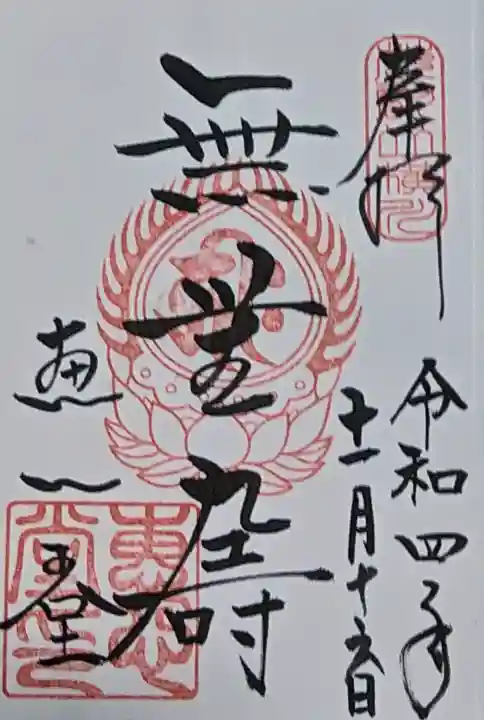 奉拝
令和四年
十一月十六日
無量壽
恵心堂